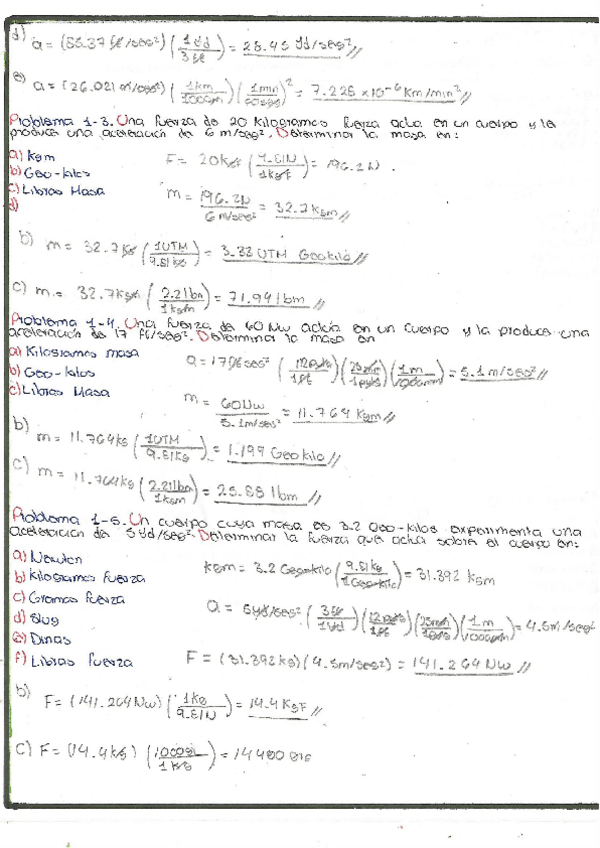 d) a = (85.37 ft/seg²) (1 yd / 3 ft) = 28.45 Yd/seg² //
e) a = (26.021 m/seg²) (1km / 1000m) (1min / 60seg)² = 7.226 x10⁻⁶ Km/min² //
Problema 1-3. Una fuerza de 20 Kilogramos fuerza actua en un cuerpo y le
produce una aceleración de 6 m/seg². Determinar la masa en:
a) Kgm
b) Geo-kilos
c) Libras Masa
d)
F = 20kgf (9.81N / 1kgf) = 196.2N.
m = 196.2N / 6m/seg² = 32.7 Kgm //
b) m = 32.7kg (1UTM / 9.81kg) = 3.33 UTM Geokilo //
c) m = 32.7kgm (2.2lbm / 1kgm) = 71.94 lbm //
Problema 1-4. Una fuerza de 60 Nw actúa en un cuerpo y la produce una
aceleración de 17 ft/seg². Determinar la masa en
a) Kilogramos masa
b) Geo-kilos
c) Libras Masa
a = 17ft/seg² (12pulg / 1ft) (25mm / 1pulg) (1m / 1000mm) = 5.1m/seg² //
m = 60Nw / 5.1m/seg² = 11.764 Kgm //
b) m = 11.764kg (1UTM / 9.81kg) = 1.199 Geokilo //
c) m = 11.764kg (2.2lbm / 1kgm) = 25.88 lbm //
Problema 1-5. Un cuerpo cuya masa es 3.2 Geo-kilos experimenta una
aceleración de 5 Yd/seg². Determinar la fuerza que actua sobre el cuerpo en:
a) Newton
b) Kilogramos fuerza
c) Gramos fuerza
d) Slug
e) Dinas
f) Libras fuerza
kgm = 3.2 Geo-kilo (9.81kg / 1Geokilo) = 31.392 kgm
a = 5yd/seg² (3ft / 1yd) (12pulg / 1ft) (25mm / 1pulg) (1m / 1000mm) = 4.5m/seg²
F = (31.392kg) (4.5m/seg²) = 141.264 Nw //
b) F = (141.264Nw) (1kg / 9.81N) = 14.4 KgF //
c) F = (14.4kg) (1000gr / 1kg) = 14400 gr